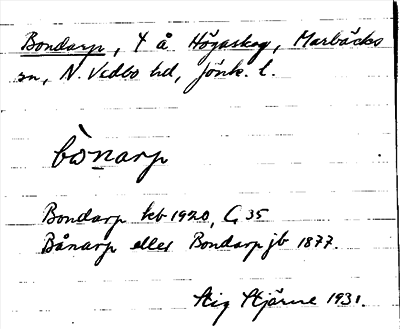 Bondarp, 4 å Högaskog, Marbäcks
sn, N. Vedbo hd, Jönk. l.
bωnarp
Bondarp kb 1920, C 35
Bånarp eller Bondarp jb 1877.
Stig Stjärne 1931.